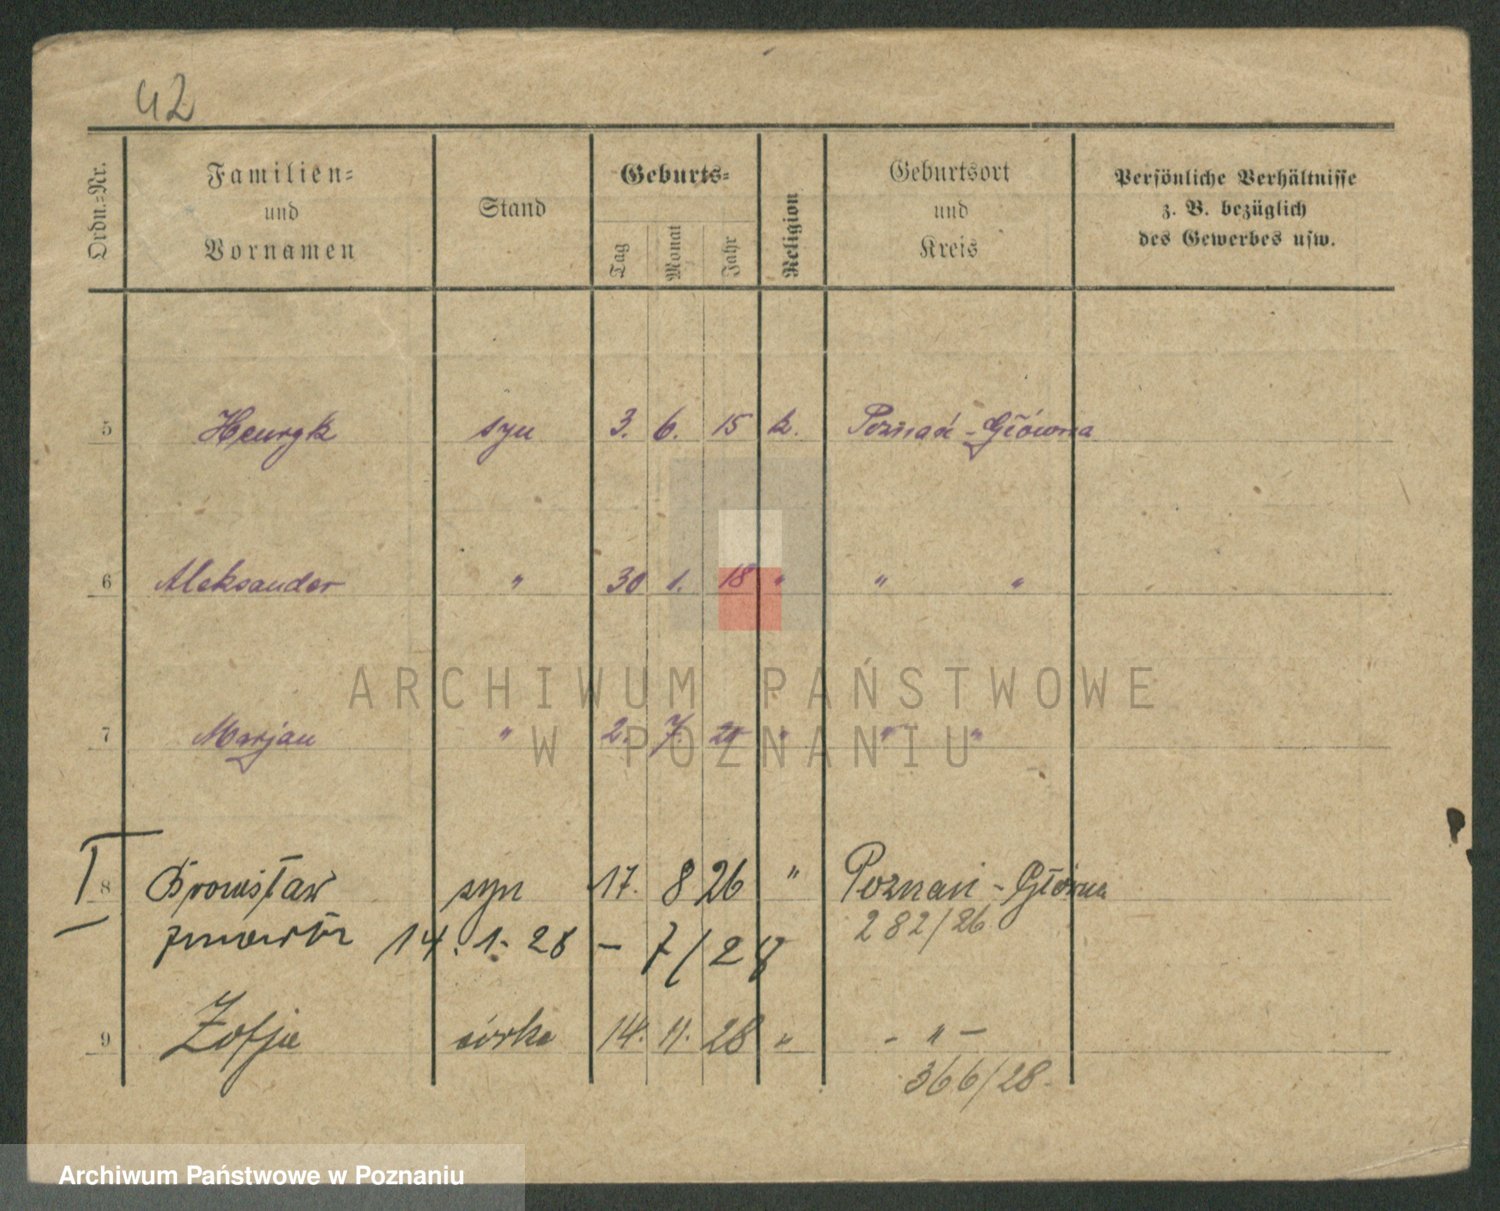 42
Ordn.-Nr.
Familien-
und
Vornamen
Stand
Geburts-
Tag
Monat
Jahr
Religion
Geburtsort
und
Kreis
Persönliche Verhältnisse
z. B. bezüglich
des Gewerbes usw.
5 Henryk syn 3. 6. 15 k. Poznań-Główna
6 Aleksander " 30 1. 18 " " "
7 Marjan " 2. 7. " " "
8 Bronisław syn 17. 8 26 " Poznań - Główna
282/26
14. 1. 28 - 7/28
9 Zofja córka 14. 11. 28 " - " -
366/28
ARCHIWUM PAŃSTWOWE
W POZNANIU
Archiwum Państwowe w Poznaniu